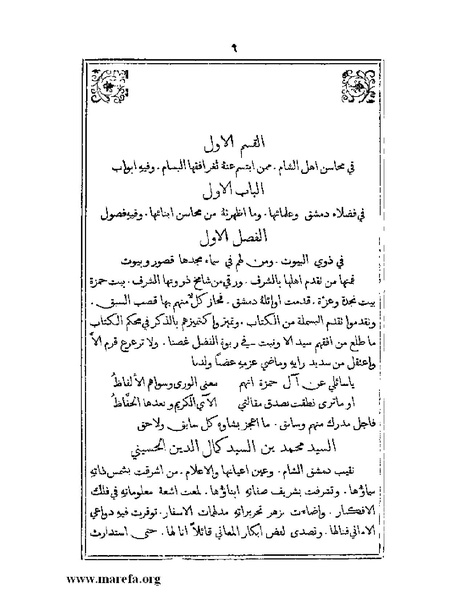 ٩
القسم الاول
في محاسن اهل الشام . ممن ابتسم عنهُ ثغر افقها البسام . وفيهِ ابواب
الباب الاول
في فضلاء دمشق وعلمائها . وما اظهرتهُ من محاسن ابنائها . وفيهِ فصول
الفصل الاول
في ذوي البيوت . ومن لهم في سماء مجدها قصور وبيوت
فمنها من تقدم اهلها بالشرف . ورقي من شامخ ذروتها الشرف . بيت حمزة
بيت نجدة وعزّة . قدمت اوائلهُ دمشق . فحاز كلٌّ منهم بها قصب السبق .
وتقدموا تقدم البسملة من الكتاب . وتميزوا كتميزهم بالذكر في محكم الكتاب
ما طلع من افقهم سيد الا ونبت في ربوة الفضل غصنا . ولا ترعرع قرم الّا
واعتقل من سديد رايهِ وماضي عزمهِ عضبًا ولدنا
ياسائلي عن آل حمزة انهم معنى الورى وسواهم الألفاظُ
او ماترى نطقت بصدق مقالتي الآي الكريم وبعدها الحفّاظُ
فاجل مدرك منهم وسابق . ما اعجز بشاوهِ كل سابق ولاحق
السيد محمد بن السيد كمال الدين الحسيني
نقيب دمشق الشام . وعين اعيانها والاعلام . من اشرقت بشمس ذاتهِ
سماؤها . وتشرفت بشريف صفاتهِ ابناؤها . لمعت اشعة معلوماتهِ في فلك
الافكار . واضاءت بزهر تحريراتهِ مدلهمات الاسفار . توفرت فيهِ دواعي
الاماني فنالها . وتصدى لفض ابكار المعاني قائلاً انا لها . حتى استدارت
www.marefa.org